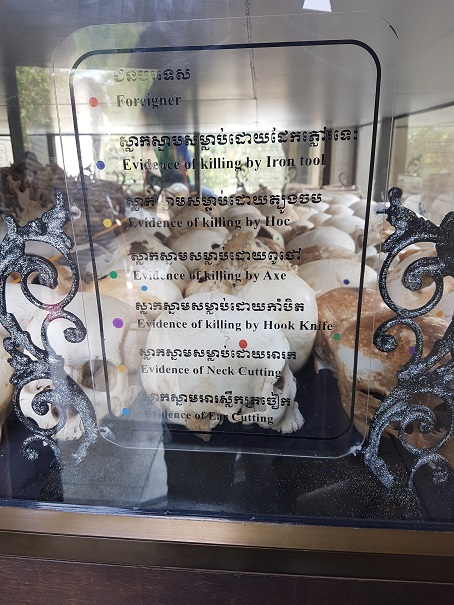 ជនបរទេស
Foreigner
ស្លាកស្នាមសម្លាប់ដោយដែកភ្លៅរទេះ
Evidence of killing by Iron tool
ស្លាកស្នាមសម្លាប់ដោយត្បូងចប
Evidence of killing by Hoc
ស្លាកស្នាមសម្លាប់ដោយពូថៅ
Evidence of killing by Axe
ស្លាកស្នាមសម្លាប់ដោយកាំបិត
Evidence of killing by Hook Knife
ស្លាកស្នាមសម្លាប់ដោយអារក
Evidence of Neck Cutting
ស្លាកស្នាមអារស្លឹកត្រចៀក
Evidence of Ear Cutting